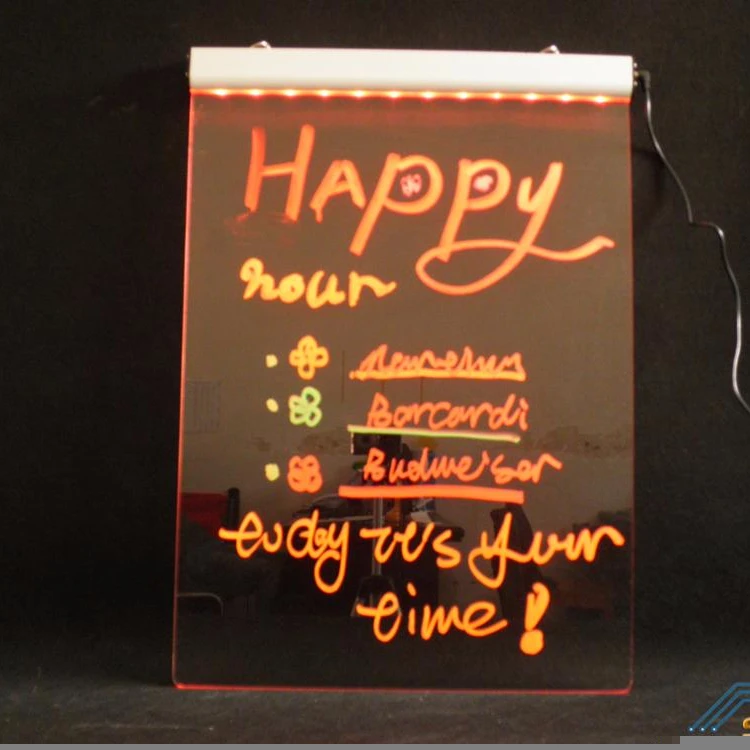 HAPPY
hour
Barcardi
Budweiser
your
time!